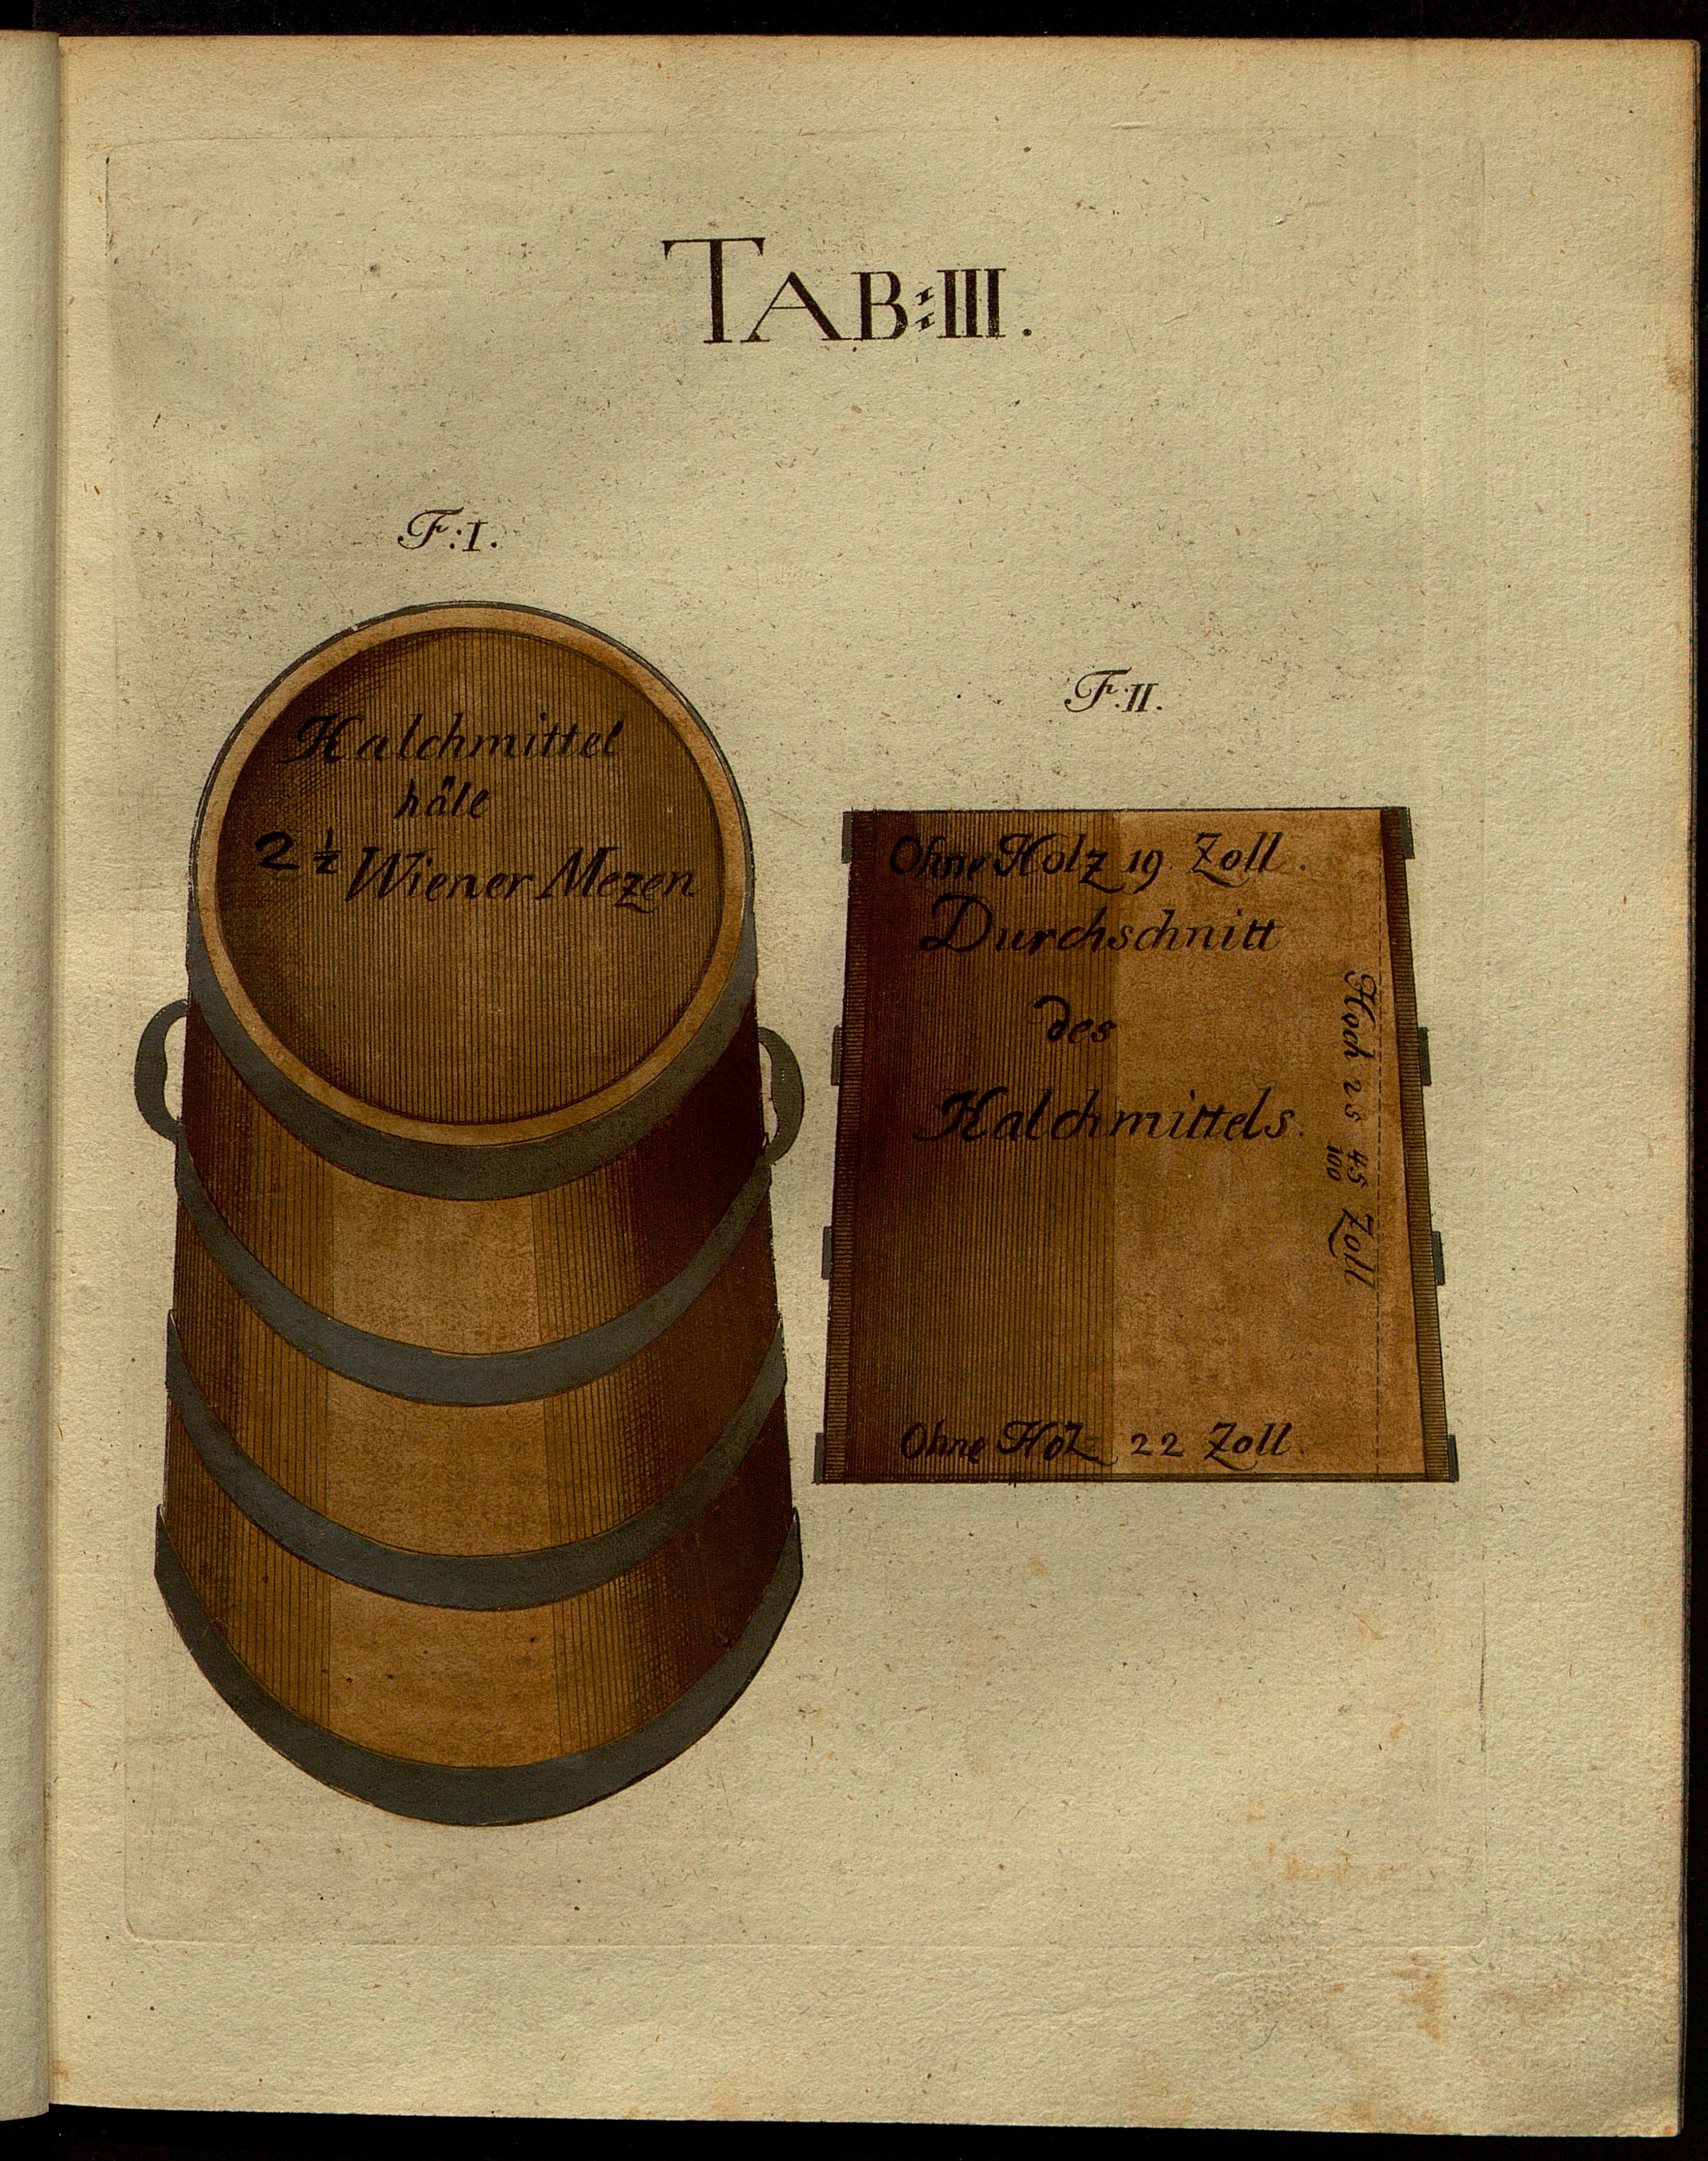 TAB:III.
F:I.
Kalchmittel
hält
2 1/2 Wiener Mezen
F:II.
Ohne Holz 19 Zoll.
Durchschnitt
des
Kalchmittels.
Hoch 25 45/100 Zoll
Ohne Holz 22 Zoll